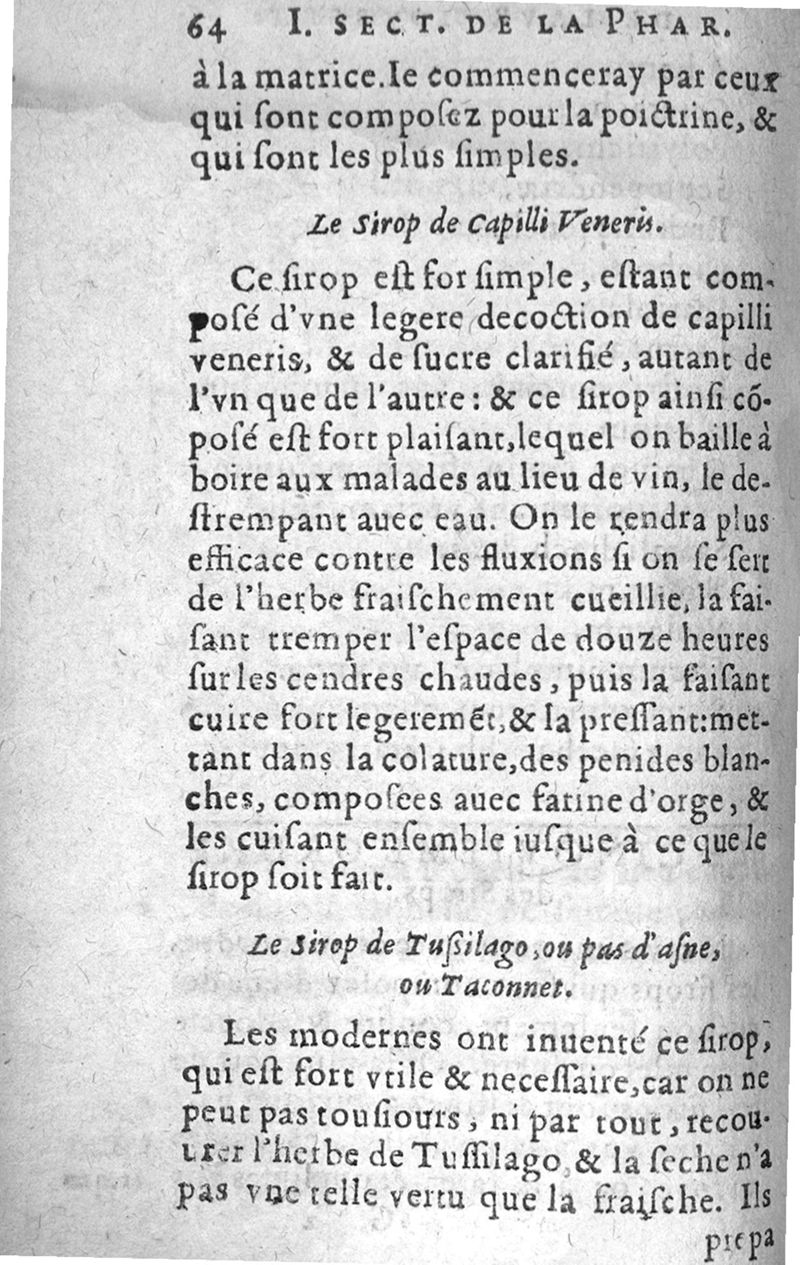 64 I. SECT. DE LA PHAR.
à la matrice. Ie commenceray par ceux
qui ſont compoſez pour la poictrine, &
qui ſont les plus ſimples.
Le Sirop de Capilli Veneris.
Ce ſirop eſt for ſimple, eſtant com-
poſé d'vne legere decoction de capilli
veneris, & de ſucre clarifié, autant de
l'vn que de l'autre: & ce ſirop ainſi cõ-
poſé eſt fort plaiſant, lequel on baille à
boire aux malades au lieu de vin, le de-
ſtrempant auec eau. On le rendra plus
efficace contre les fluxions ſi on ſe ſert
de l'herbe fraiſchement cueillie, la fai-
ſant tremper l'eſpace de douze heures
ſur les cendres chaudes, puis la faiſant
cuire fort legeremẽt, & la preſſant: met-
tant dans la colature, des penides blan-
ches, compoſees auec farine d'orge, &
les cuiſant enſemble iuſque à ce que le
ſirop ſoit fait.
Le Sirop de Tuſsilago, ou pas d'aſne,
ou Taconnet.
Les modernes ont inuenté ce ſirop,
qui eſt fort vtile & neceſſaire, car on ne
peut pas touſiours, ni par tout, recou-
urer l'herbe de Tuſſilago, & la ſeche n'a
pas vne telle vertu que la fraiſche. Ils
prepa